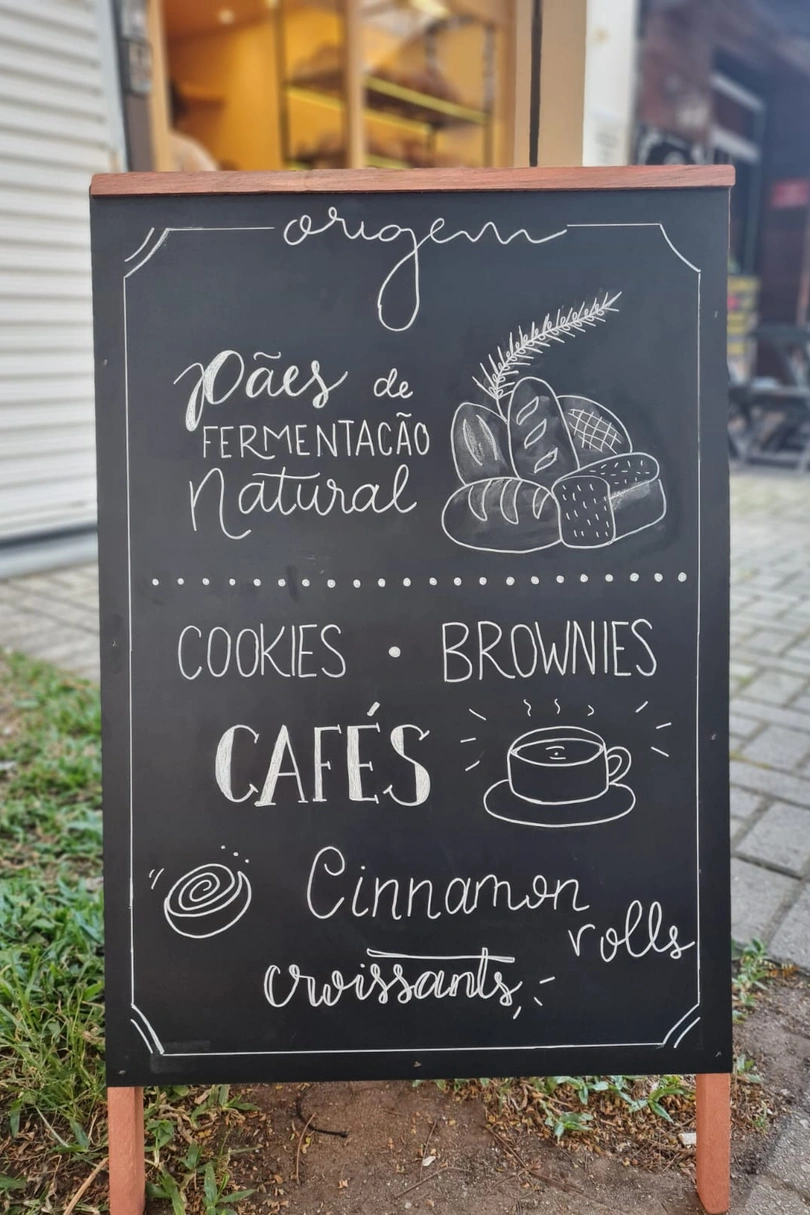 origem
Pães de
FERMENTAÇÃO
Natural
COOKIES • BROWNIES
CAFÉS
Cinnamon
rolls
croissants